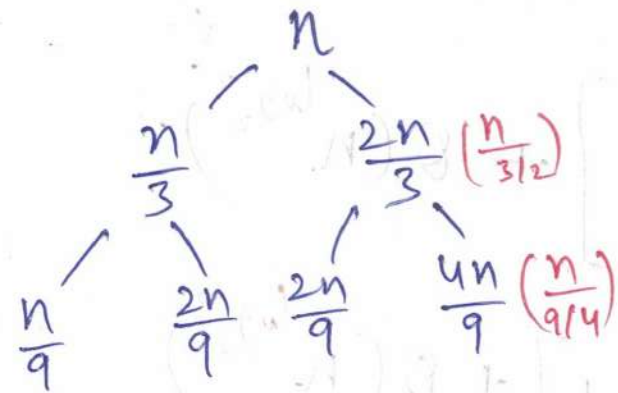 n
n/3 2n/3 (n/3/2)
n/9 2n/9 2n/9 4n/9 (n/9/4)